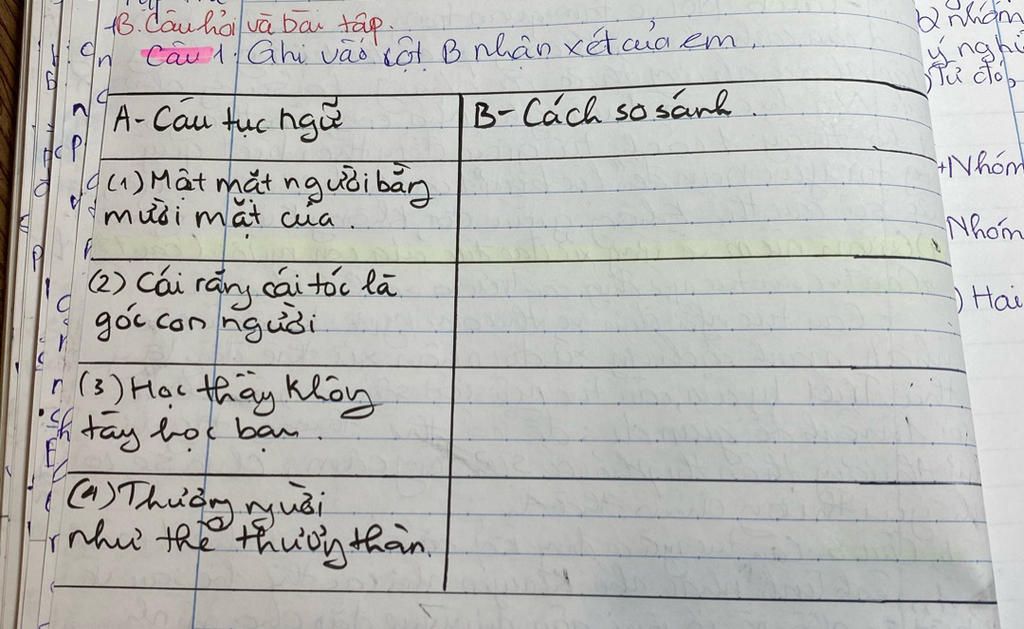 B. Câu hỏi và bài tập.
Câu 1: Ghi vào cột B nhận xét của em.
A- Câu tục ngữ
B- Cách so sánh.
(1) Một mặt người bằng
mười mặt của.
(2) Cái răng cái tóc là
góc con người
(3) Học thầy không
tày học bạn.
(4) Thương người
như thể thương thân.
nhóm
ý nghĩ
Từ đó,
+Nhóm
Nhóm
) Hai